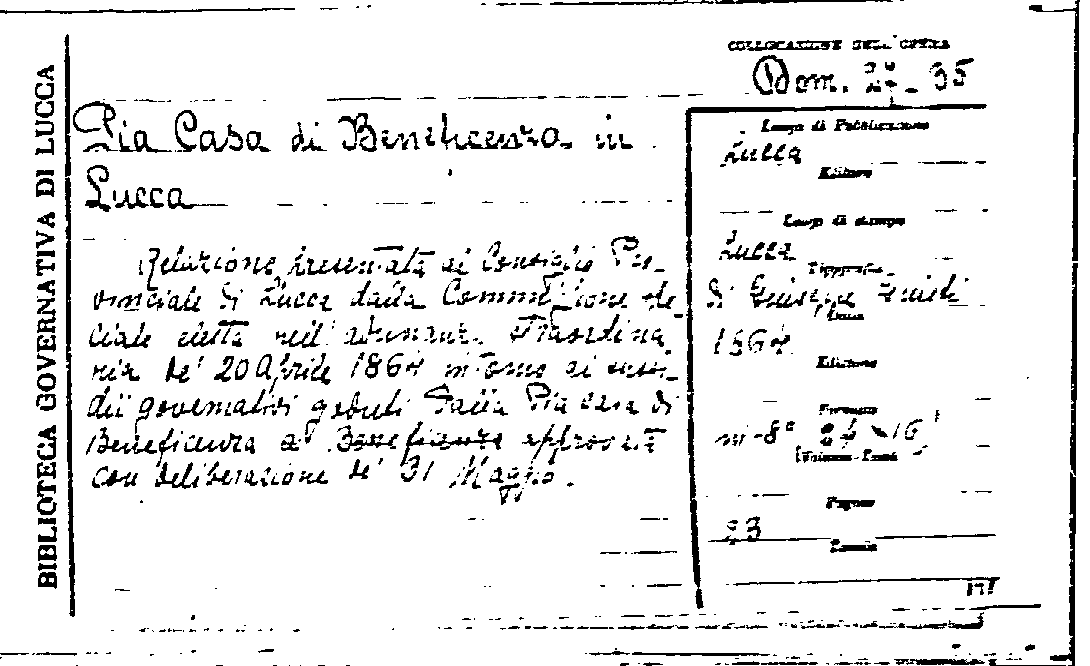 BIBLIOTECA GOVERNATIVA DI LUCCA
COLLOCAZIONE DELL'OPERA
Dom. 2ª - 35
Pia Casa di Beneficenza in
Lucca
Relazione presentata al Consiglio Pro-
vinciale di Lucca dalla Commissione spe-
ciale eletta nell'adunanza straordina
ria de' 20 Aprile 1864 intorno ai sussi-
dii governativi goduti dalla Pia casa di
Beneficenza Beneficenza approvata
con deliberazione de' 31 Maggio.
Luogo di Pubblicazione
Lucca
Editore
Luogo di stampa
Lucca
Tipografia
di Giuseppe
1864
Edizione
Formato
in-8°
Pagine
23